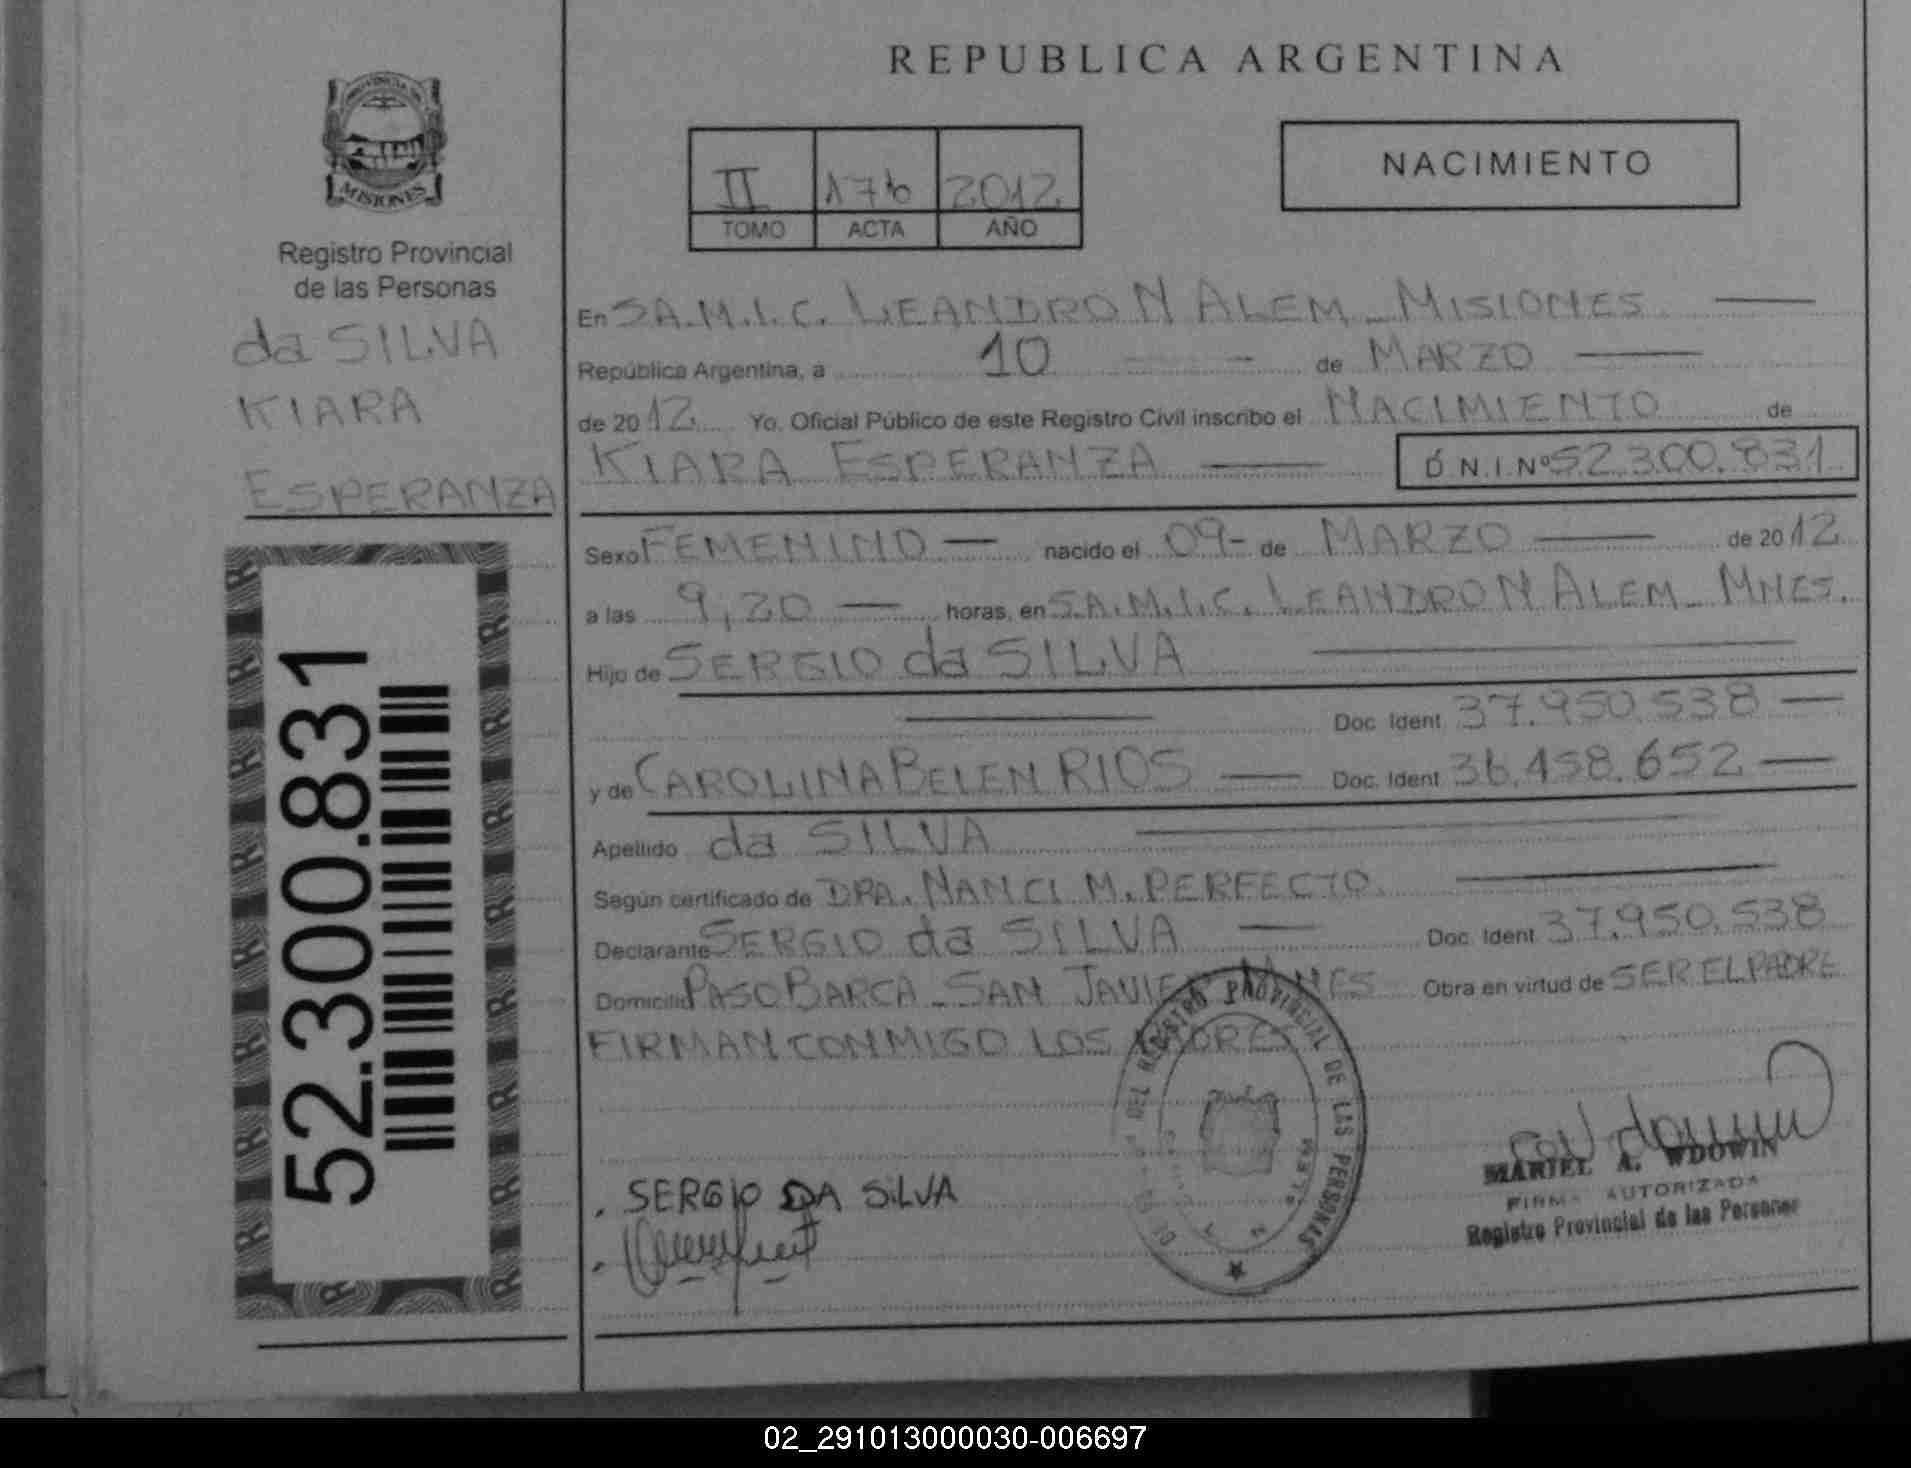 PROVINCIA DE
MISIONES
Registro Provincial
de las Personas
da SILVA
KIARA
ESPERANZA
52.300.831
REPUBLICA ARGENTINA
II 176 2012
TOMO ACTA AÑO
NACIMIENTO
En S.A.M.I.C. LEANDRO N ALEM - MISIONES
República Argentina, a 10 de MARZO
de 2012 Yo. Oficial Público de este Registro Civil inscribo el NACIMIENTO de
KIARA ESPERANZA D.N.I.Nº 52.300.831
Sexo FEMENINO nacido el 09- de MARZO de 2012
a las 9,20 horas, en S.A.M.I.C. LEANDRO N ALEM - MNES.
Hijo de SERGIO da SILVA
Doc. Ident. 37.950.538
y de CAROLINA BELEN RIOS Doc. Ident. 36.458.652
Apellido da SILVA
Según certificado de DRA. NANCI M. PERFECTO
Declarante SERGIO da SILVA Doc. Ident. 37.950.538
Domicilio PASO BARCA - SAN JAVIER MNES Obra en virtud de SER EL PADRE
FIRMAN CONMIGO LOS PADRES
DEL REGISTRO PROVINCIAL DE LAS PERSONAS
. SERGIO DA SILVA
MARIEL A. WDOWIN
FIRMA AUTORIZADA
Registro Provincial de las Personas
02_291013000030-006697